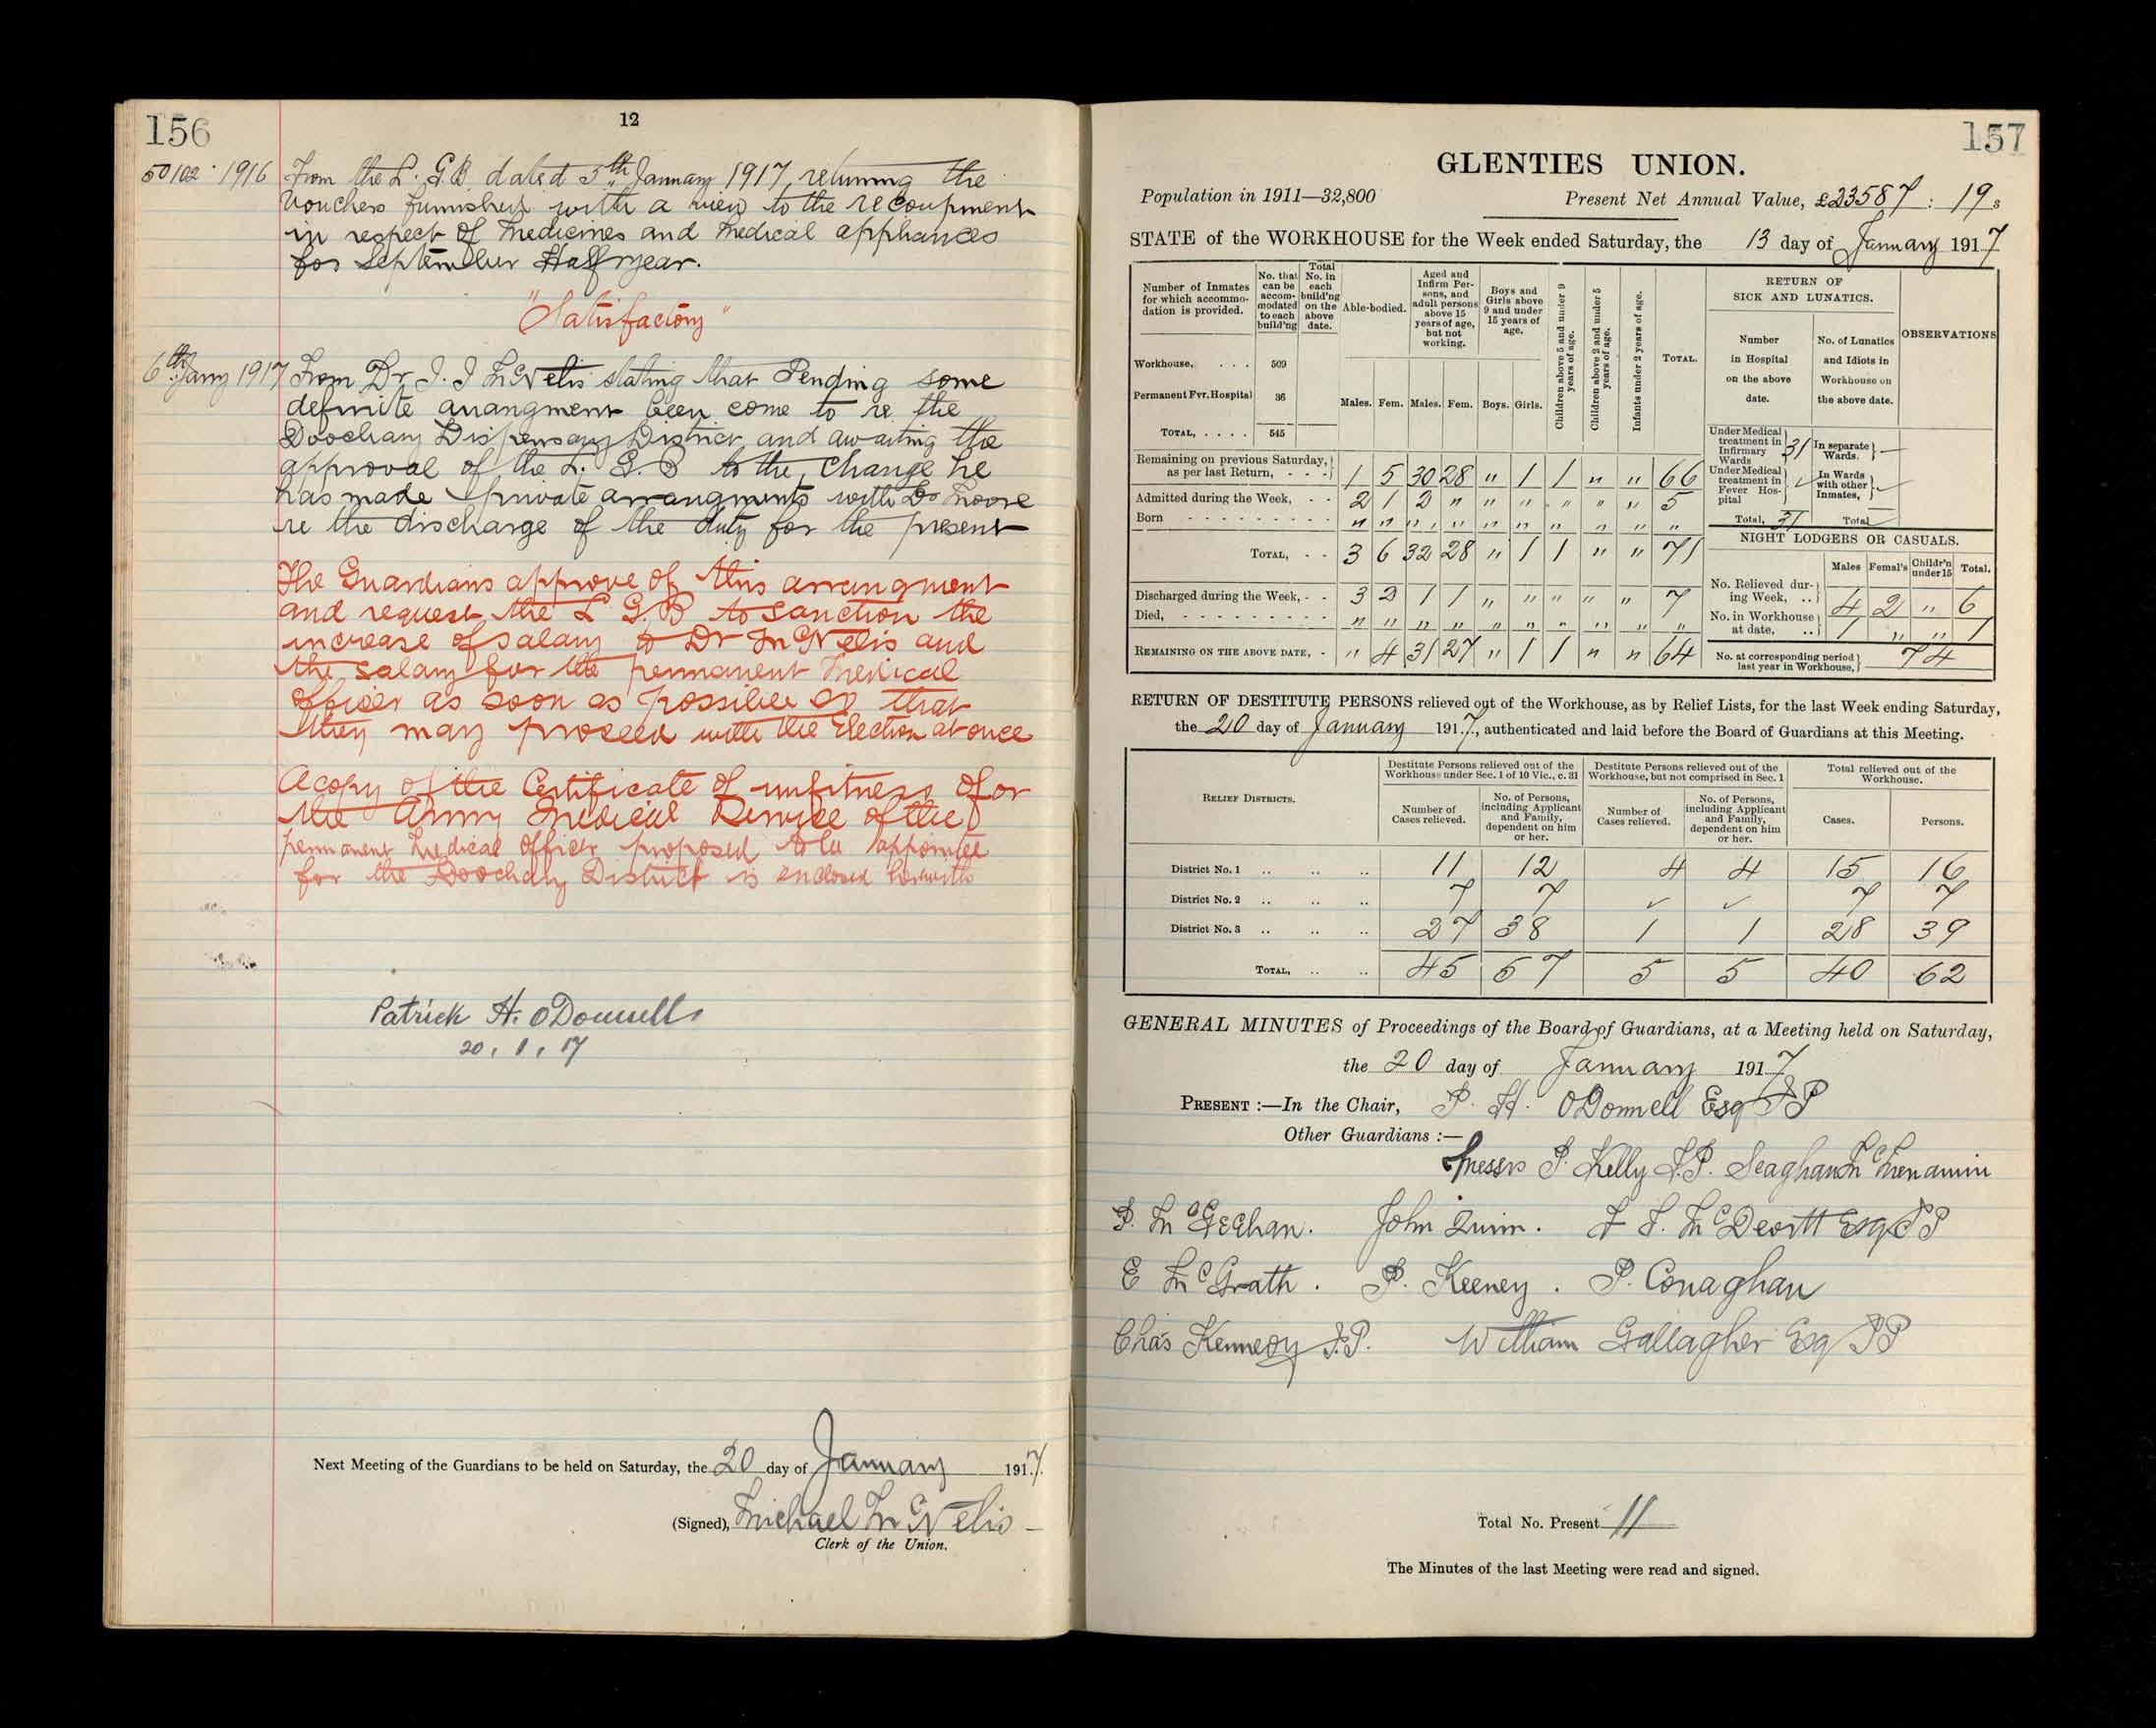 156
12
50102 · 1916 From the L. G. B. dated 5th January 1917, returning the
Vouchers furnished with a view to the recoupment
in respect of Medicines and Medical appliances
for September Half year.
"Satisfactory"
6th Jany 1917 From Dr J. J McNelis stating that Pending some
definite arrangment been come to re the
Doochary Dispensary District and awaiting the
approval of the L. G. B to the change he
has made private arrangments with Dr Moore
re the discharge of the duty for the present
The Guardians approve of this arrangment
and request the L G. B to sanction the
increase of salary to Dr McNelis and
the salary for the permanent Medical
Officer as soon as possible so that
they may proceed with the Election at once
A copy of the Certificate of unfitness for
the Army Medical Service of the
permanent Medical Officer proposed to be appointed
for the Doochary District is enclosed herewith
Patrick H. O'Donnell
20. 1. 17
Next Meeting of the Guardians to be held on Saturday, the 20 day of January 1917.
(Signed), Michael McNelis
Clerk of the Union.
157
GLENTIES UNION.
Population in 1911—32,800 Present Net Annual Value, £23587 : 19 s
STATE of the WORKHOUSE for the Week ended Saturday, the 13 day of January 1917
Number of Inmates for which accommodation is provided.
No. that can be accommodated to each build'ng
Total No. in each build'ng on the above date.
Able-bodied.
Aged and Infirm Persons, and adult persons above 15 years of age, but not working.
Boys and Girls above 9 and under 15 years of age.
Children above 5 and under 9 years of age.
Children above 2 and under 5 years of age.
Infants under 2 years of age.
TOTAL.
RETURN OF SICK AND LUNATICS.
Number in Hospital on the above date.
No. of Lunatics and Idiots in Workhouse on the above date.
OBSERVATIONS
Workhouse, . . . 509
Permanent Fvr. Hospital 36
TOTAL, . . . . 545
Males. Fem. Males. Fem. Boys. Girls.
Remaining on previous Saturday, as per last Return, - - - 1 5 30 28 " 1 1 " " 66
Admitted during the Week, - - 2 1 2 " " " " " " 5
Born - - - - - - - - - " " " " " " " " " "
TOTAL, - - 3 6 32 28 " 1 1 " " 71
Discharged during the Week, - - 3 2 1 1 " " " " " 7
Died, - - - - - - - - - " " " " " " " " " "
REMAINING ON THE ABOVE DATE, - " 4 31 27 " 1 1 " " 64
Under Medical treatment in Infirmary Wards 31
In separate Wards. —
Under Medical treatment in Fever Hospital ✓
In Wards with other Inmates, ✓
Total, 31 Total
NIGHT LODGERS OR CASUALS.
Males Femal's Childr'n under 15 Total.
No. Relieved during Week, .. 4 2 " 6
No. in Workhouse at date, .. 1 " " 1
No. at corresponding period last year in Workhouse, 74
RETURN OF DESTITUTE PERSONS relieved out of the Workhouse, as by Relief Lists, for the last Week ending Saturday,
the 20 day of January 1917., authenticated and laid before the Board of Guardians at this Meeting.
RELIEF DISTRICTS.
Destitute Persons relieved out of the Workhouse under Sec. 1 of 10 Vic., c. 31
Destitute Persons relieved out of the Workhouse, but not comprised in Sec. 1
Total relieved out of the Workhouse.
Number of Cases relieved.
No. of Persons, including Applicant and Family, dependent on him or her.
Number of Cases relieved.
No. of Persons, including Applicant and Family, dependent on him or her.
Cases.
Persons.
District No. 1 .. .. .. 11 12 4 4 15 16
District No. 2 .. .. .. 7 7 ✓ ✓ 7 7
District No. 3 .. .. .. 27 38 1 1 28 39
TOTAL, .. .. 45 57 5 5 40 62
GENERAL MINUTES of Proceedings of the Board of Guardians, at a Meeting held on Saturday,
the 20 day of January 1917
PRESENT :—In the Chair, P. H. O'Donnell Esq JP
Other Guardians :—
Messrs P. Kelly J.P. Seaghan McMenamin
P. McGeehan. John Quinn. J. F. McDevitt Esq JP
E McGrath. P. Keeney. P. Conaghan
Chas Kennedy J.P. William Gallagher Esq JP
Total No. Present 11
The Minutes of the last Meeting were read and signed.